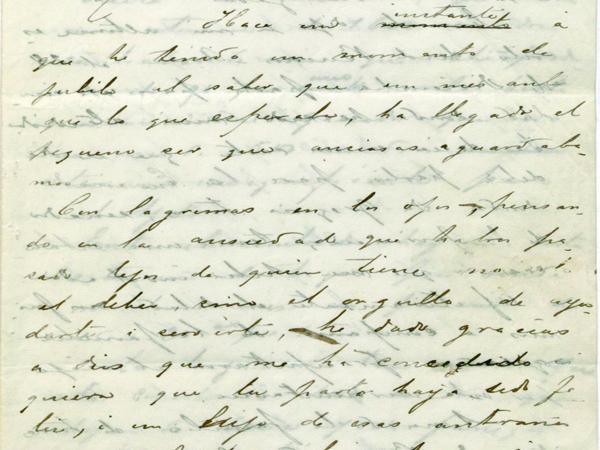 Hace un instante á
que he tenido un momento de
jubilo al saber que un mes ant
es de lo que esperaba, ha llegado el
pequeno ser que ansiosas aguardaba-
mos.
Con lagrimas en los ojos, pensan-
do en la ansiedad que habras pa-
sado lejos de quien tiene no
el deber, sino el orgullo de ayu-
darte i servirte, he dado gracias
a Dios que me ha concedido
quiera que tu parto haya sido fe
liz, i un hijo de esas entrañas